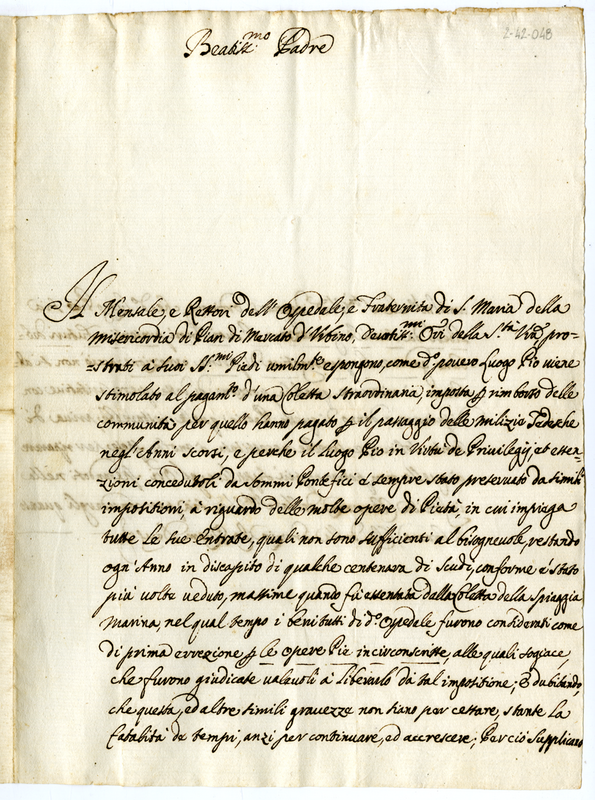 2-42-048
Beatiss.mo Padre
Il Mensale, e Rettori dell'Ospedale, e Fraternita di S. Maria della
Misericordia di Pian di Mercato d'Urbino, Devotiss.mi Ori della S.ta V.ra pro-
strati a' suoi SS.mi Piedi umilm.te espongono, come d.o povero Luogo Pio viene
stimolato al pagam.to d'una Coletta straordinaria, imposta p rimborso delle
communità per quello hanno pagato p il passaggio delle milizie Tedesche
negl'Anni scorsi, e perche il Luogo Pio in Virtù de Privilegij, et essen-
zioni concedutoli da Sommi Pontefici è sempre stato preservato da simili
impositioni, à riguardo delle molte opere di Pietà, in cui impiega
tutte le sue entrate, quali non sono sufficienti al bisognevole, restando
ogn'Anno in discapito di qualche centenara di scudi, conforme è stato
più volte veduto, massime quando fù essentata dalla Coletta della spiaggia
marina, nel qual tempo i beni tutti di d.o Ospedale furono considerati come
di prima errezione p le opere Pie incirconscritte, alle quali sogiace,
che furono giudicate valevoli à liberarlo da tal impositione; E dubitando,
che questa, ed altre simili gravezze non siano per cessare, stante la
fatalità de tempi, anzi per continuare, ed accrescere; Perciò supplicano